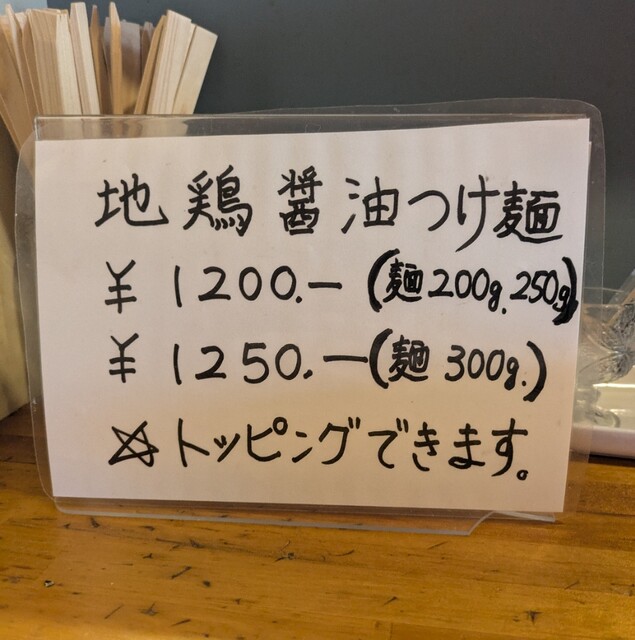 地鶏醤油つけ麺
¥1200.ー(麺200g.250g)
¥1250.ー(麺300g.)
☆トッピングできます。